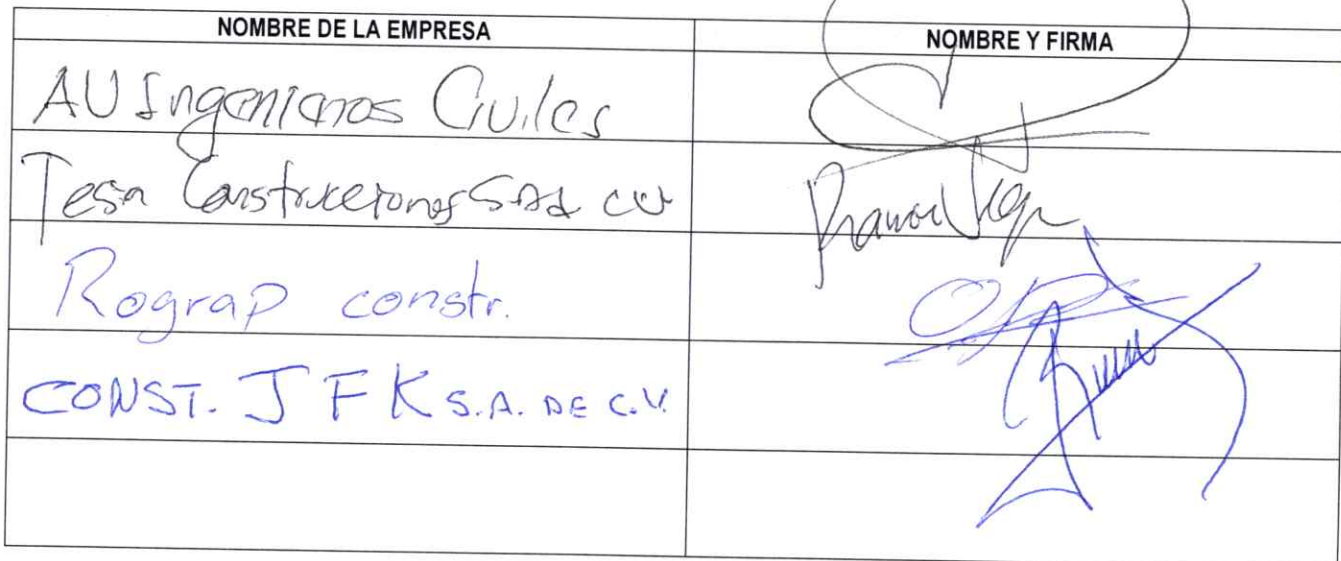 NOMBRE DE LA EMPRESA
NOMBRE Y FIRMA
AU Ingenieros Civiles
Tesa Construcciones SA de CV
Rograp constr.
CONST. J F K S.A. DE C.V.